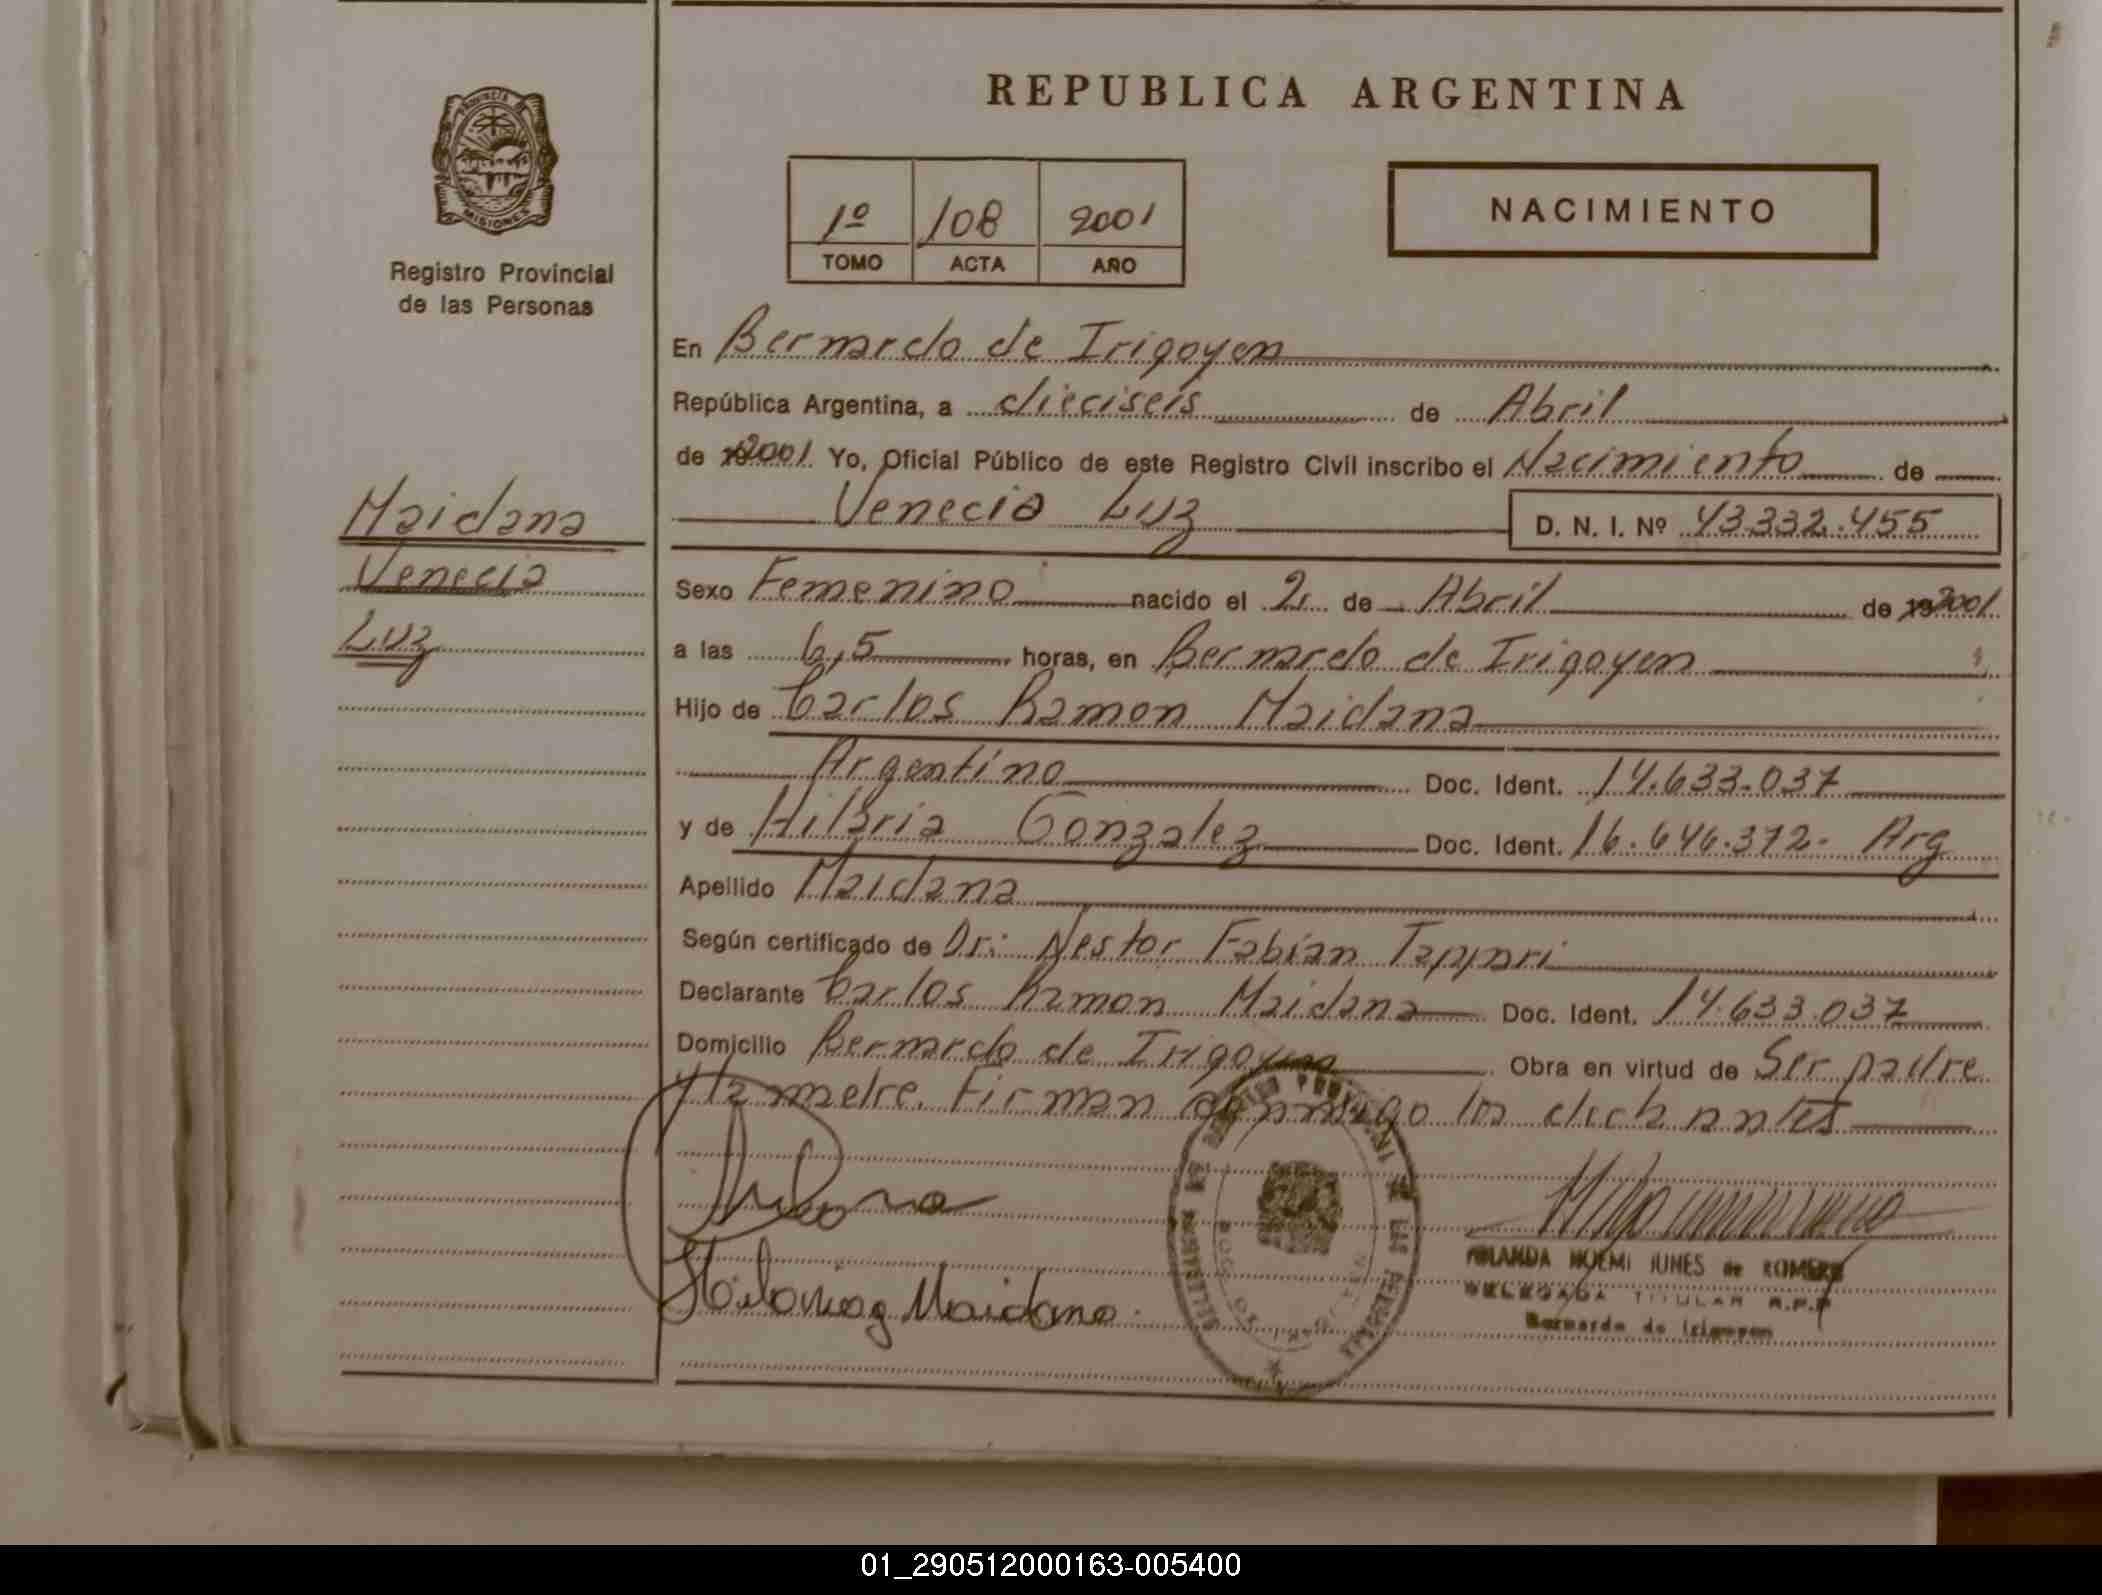 REPUBLICA ARGENTINA
PROVINCIA DE
MISIONES
Registro Provincial
de las Personas
1º 108 2001
TOMO ACTA AÑO
NACIMIENTO
Maidana
Venecia
Luz
En Bernardo de Irigoyen
República Argentina, a dieciseis de Abril
de 2001 Yo, Oficial Público de este Registro Civil inscribo el Nacimiento de
Venecia Luz D. N. I. Nº 43.332.455
Sexo Femenino nacido el 2 de Abril de 2001
a las 6,5 horas, en Bernardo de Irigoyen
Hijo de Carlos Ramon Maidana
Argentino Doc. Ident. 14.633.037
y de Hilaria Gonzalez Doc. Ident. 16.646.372- Arg
Apellido Maidana
Según certificado de Dr: Nestor Fabian Tappari
Declarante Carlos Ramon Maidana Doc. Ident. 14.633.037
Domicilio Bernardo de Irigoyen Obra en virtud de Ser padre
y la madre. Firman conmigo los declarantes
Maidana
YOLANDA NOEMI JUNES de ROMERO
DELEGADA TITULAR R.P.P
Bernardo de Irigoyen
01_290512000163-005400